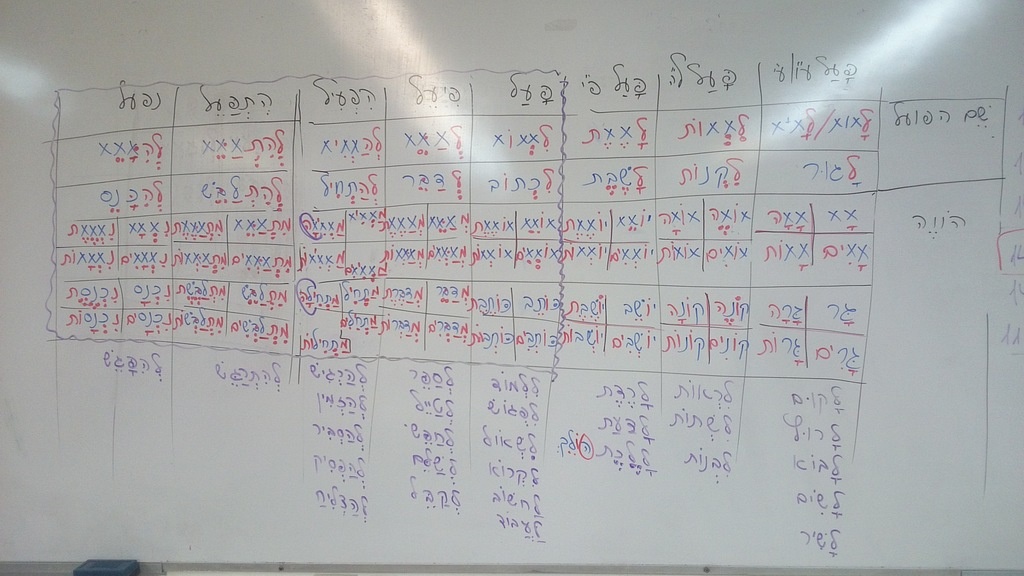 פָּעַל ע"ו/ע"י פָּעַל ל"י פָּעַל פ"י פָּעַל פִּיעֵל הִפְעִיל הִתְפַּעֵל נפעל
שֵׁם הפועל לָXוX/לָXיX לִXְXוֹת לָXֶXֶת לִXְXוֹX לְXַXֵX לְהַXְXִיX לְהִתְXַXֵX לְהִXָXֵX
לָגוּר לִקְנוֹת לָשֶׁבֶת לִכְתּוֹב לְדַבֵּר לְהַתְחִיל לְהִתְלַבֵּשׁ לְהִכָּנֵס
הוֹוֶה XָX XָXָה XוֹXֶה XוֹXָה יוֹXֵX יוֹXֶXֶת XוֹXֵX XוֹXֶXֶת מְXַXֵX מְXַXֶXֶת מַXְXִיX מַXְXִיXָה מִתְXַXֵX מִתְXַXֶXֶת נִXְXָX נִXְXֶXֶת
XָXִים XָXוֹת XוֹXִים XוֹXוֹת יוֹXְXִים יוֹXְXוֹת XוֹXְXִים XוֹXְXוֹת מְXַXְXִים מְXַXְXוֹת מַXְXִיXִים מַXְXִיXוֹת מִתְXַXְXִים מִתְXַXְXוֹת נִXְXָXִים נִXְXָXוֹת
גָּר גָּרָה קוֹנֶה קוֹנָה יוֹשֵׁב יוֹשֶׁבֶת כּוֹתֵב כּוֹתֶבֶת מְדַבֵּר מְדַבֶּרֶת מַתְחִיל מַתְחִילָה מִתְלַבֵּשׁ מִתְלַבֶּשֶׁת נִכְנָס נִכְנֶסֶת
גָּרִים גָּרוֹת קוֹנִים קוֹנוֹת יוֹשְׁבִים יוֹשְׁבוֹת כּוֹתְבִים כּוֹתְבוֹת מְדַבְּרִים מְדַבְּרוֹת מַתְחִילִים מַתְחִילוֹת מִתְלַבְּשִׁים מִתְלַבְּשׁוֹת נִכְנָסִים נִכְנָסוֹת
לָקוּם לִרְאוֹת לָרֶדֶת לִלְמוֹד לְסַפֵּר לְהַרְגִּישׁ לְהִתְרַגֵּשׁ לְהִפָּגֵשׁ
לָרוּץ לִשְׁתּוֹת לָדַעַת לִפְגוֹשׁ לְטַיֵּיל לְהַזְמִין
לָבוֹא לִבְנוֹת לָלֶכֶת הוֹלֵךְ לִשְׁאוֹל לְחַפֵּשׂ לְהַסְבִּיר
לָשִׂים לִקְרוֹא לְשַׁלֵּם לְהַפְסִיק
לָשִׁיר לַחְשׁוֹב לְקַבֵּל לְהַצְלִיחַ
לַעֲבוֹד